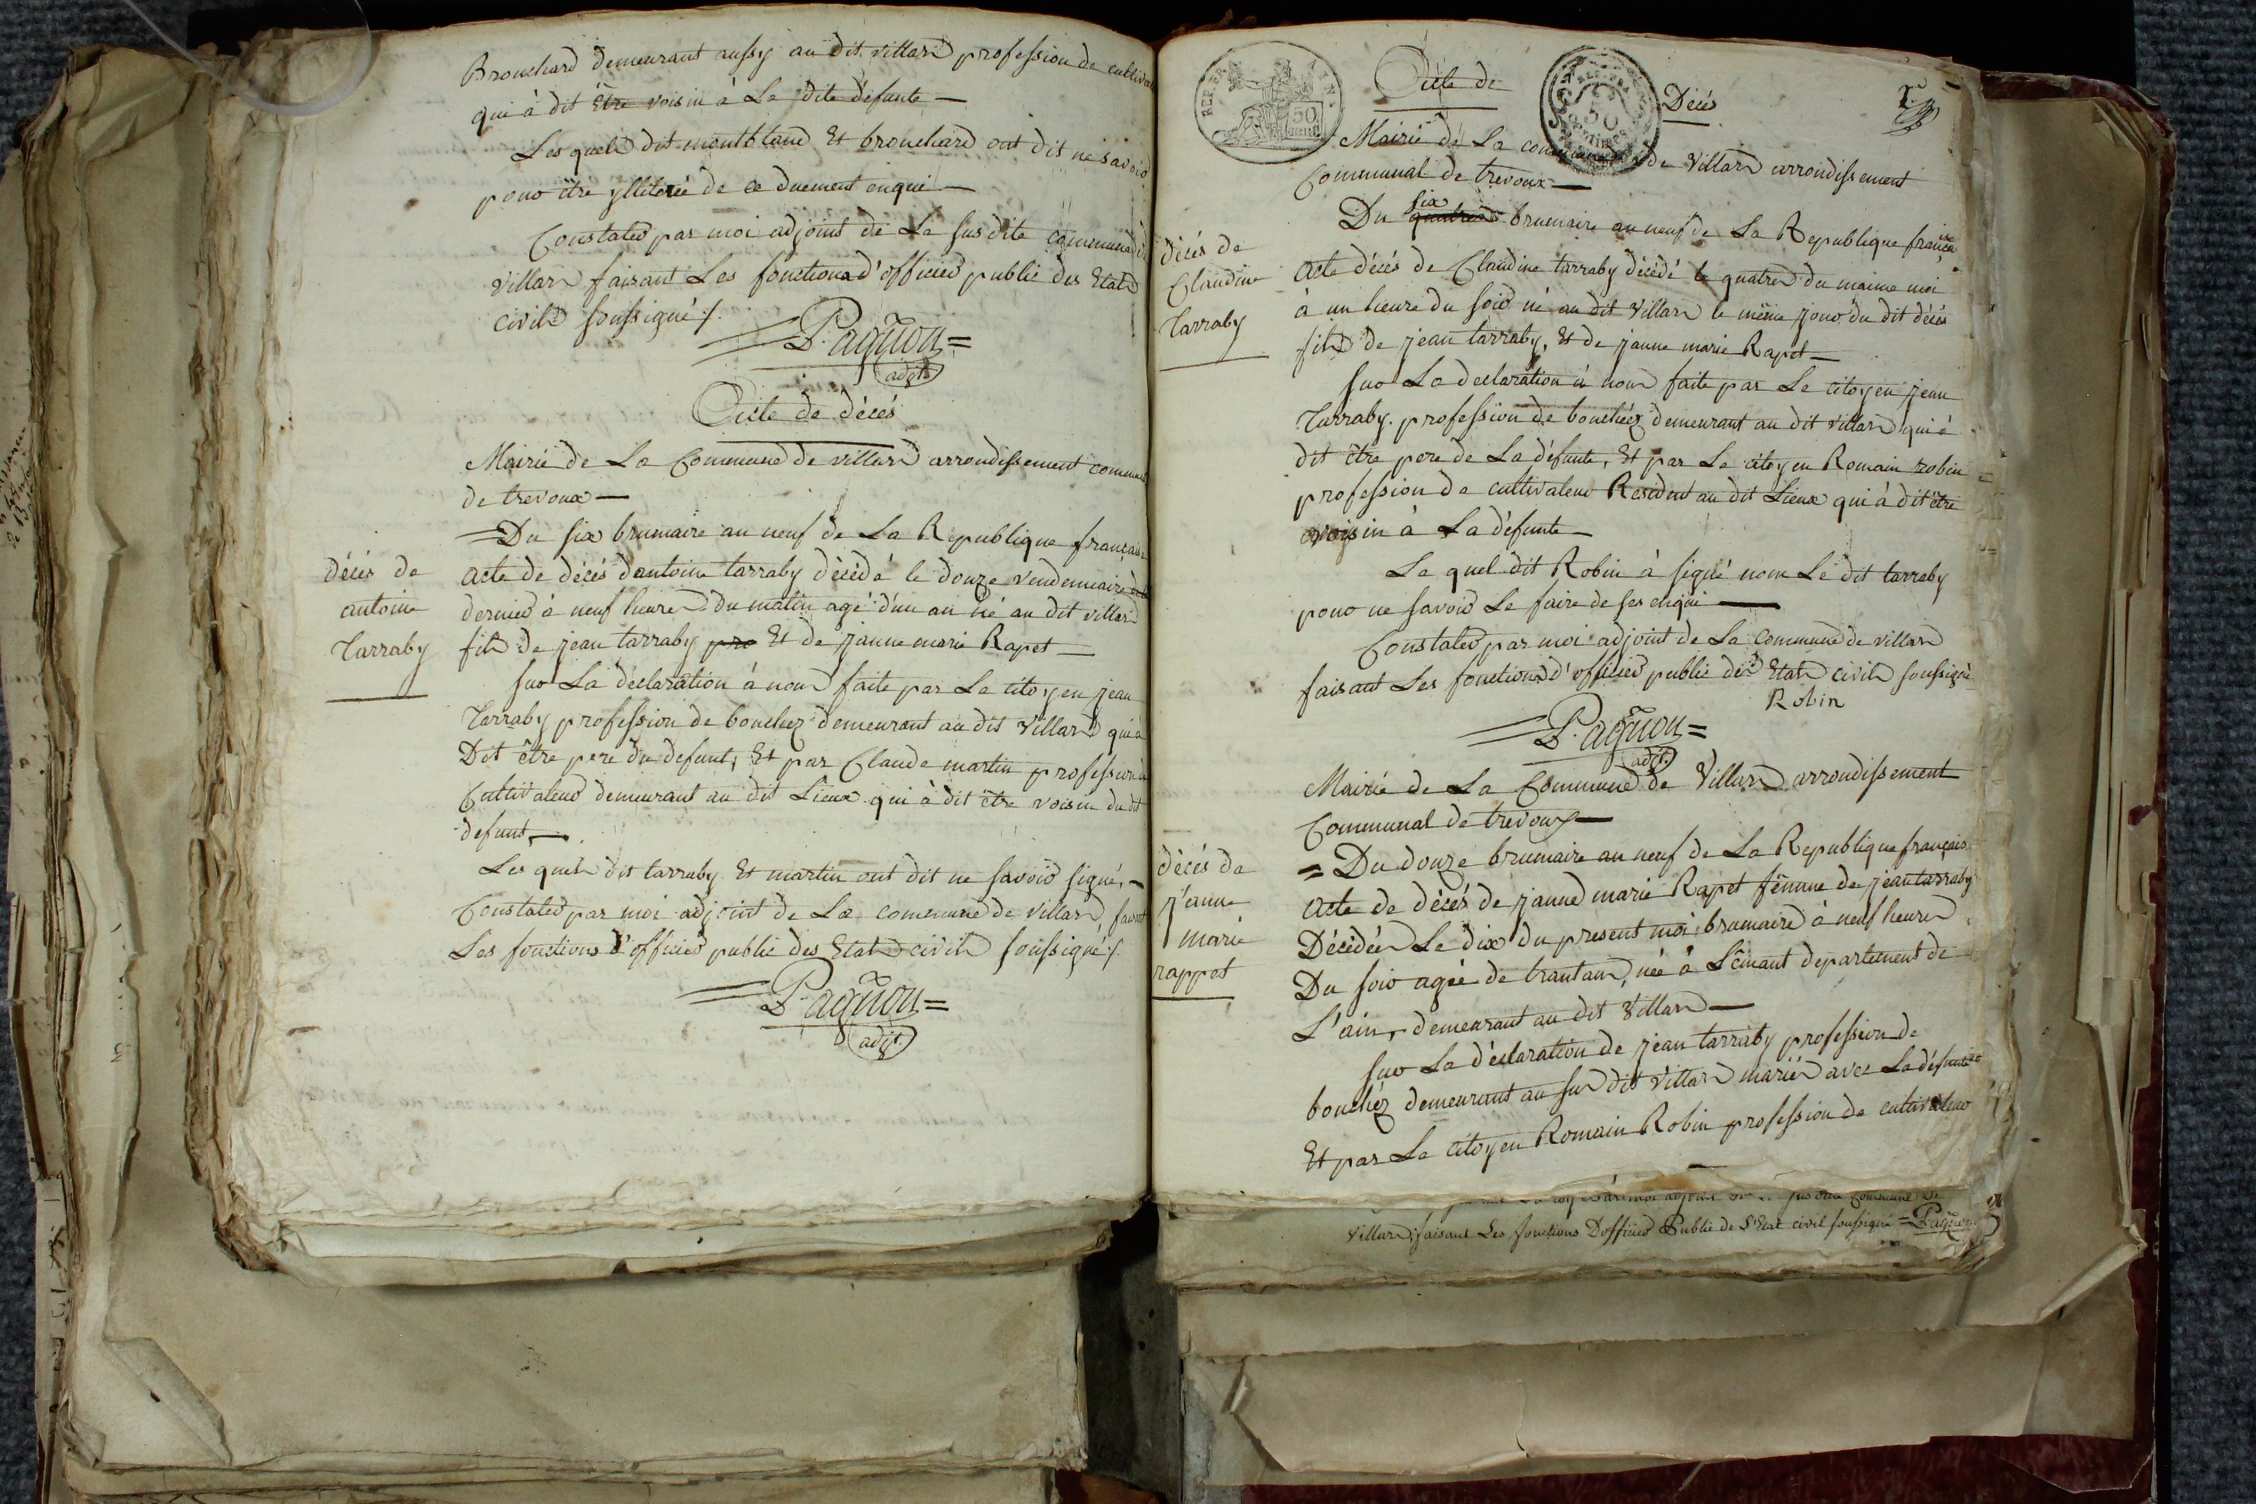 Brouchard demeurant aussy au dit villard profession de cultivat
qui à dit être voisin à La dite défunte —
Les quels dit montbland Et brouchard ont dit ne savoir
pour être yllitérée de ce duement enqui —
Constated par moi adjoint de La susdite commune de
villard faisant Les fonctions d'officier public des Etats
civils soussigné /.
= Pagnon =
adjt.
Acte de décés
Mairie de La Commune de villard arrondissement commun
de trevoux —
= Du six brumaire an neuf de La Republique français
décés de
antoine
Tarraby
Acte de décés dantoine tarraby décédé le douze vendemiaire
dernier à neuf heures du matin agé d'un an né au dit villard
fils de jean tarraby pro Et de janne marie Rapet —
sur La déclaration à nous faite par Le citoyen jean
Tarraby profession de bouchez demeurant au dit Villard qui à
Dit être pere du defunt, Et par Claude martin profession d
Cultivateur demeurant au dit Lieux qui à dit être voisin du dit
defunt —
Les quels dit tarraby Et martin ont dit ne savoir signé, —
Constated par moi adjoint de La commune de villard faisant
Les fonctions d'officier public des Etats civils soussigné /.
= Pagnon =
adjt.
REP. FRA
50
CENT.
Acte de
50
CENTIMES
Décés
Mairie de La commune de Villard arrondissement
Communal de trevoux —
Du quatre six brumaire an neuf de La Republique françai
décés de
Claudine
Tarraby
Acte décés de Claudine tarraby décédé le quatre du maime moi
à un heure du soir né au dit Villard le même jour du dit décés
fils de jean tarraby, Et de janne marie Rapet —
sur La declaration à nous faite par Le citoyen jean
Tarraby. profession de bouchéz demeurant au dit villard qui à
dit être pere de La défunte, Et par Le citoyen Romain robin =
profession de cultivateur Resident au dit Lieux qui à dit être
voisin à La défunte —
Le quel dit Robin à signé nom Le dit tarraby
pour ne savoir Le faire de ses enqui —
Constated par moi adjoint de La commune de villard
faisant Les fonctions d'officier public des Etats civils soussigné
Robin
= Pagnon =
adjt.
Mairie de La Commune de Villard arrondissement
Communal de trevoux —
= Du douze brumaire an neuf de La Republique français
décés de
j'anne
marie
rappet
Acte de décés de janne marie Rapet femme de jean tarraby
Décédée Le dix du present moi brumaire à neuf heures
Du soir agée de trantans, née à Semant departement de
L'ain, demeurant au dit Villard —
sur La déclaration de jean tarraby profession de
bouchéz demeurant au sus dit Villard mariée avec La défunte
Et par Le citoyen Romain Robin profession de cultivateur
Villard, faisant Les fonctions D'officier Public de L'Etat civil soussigné = Pagnon